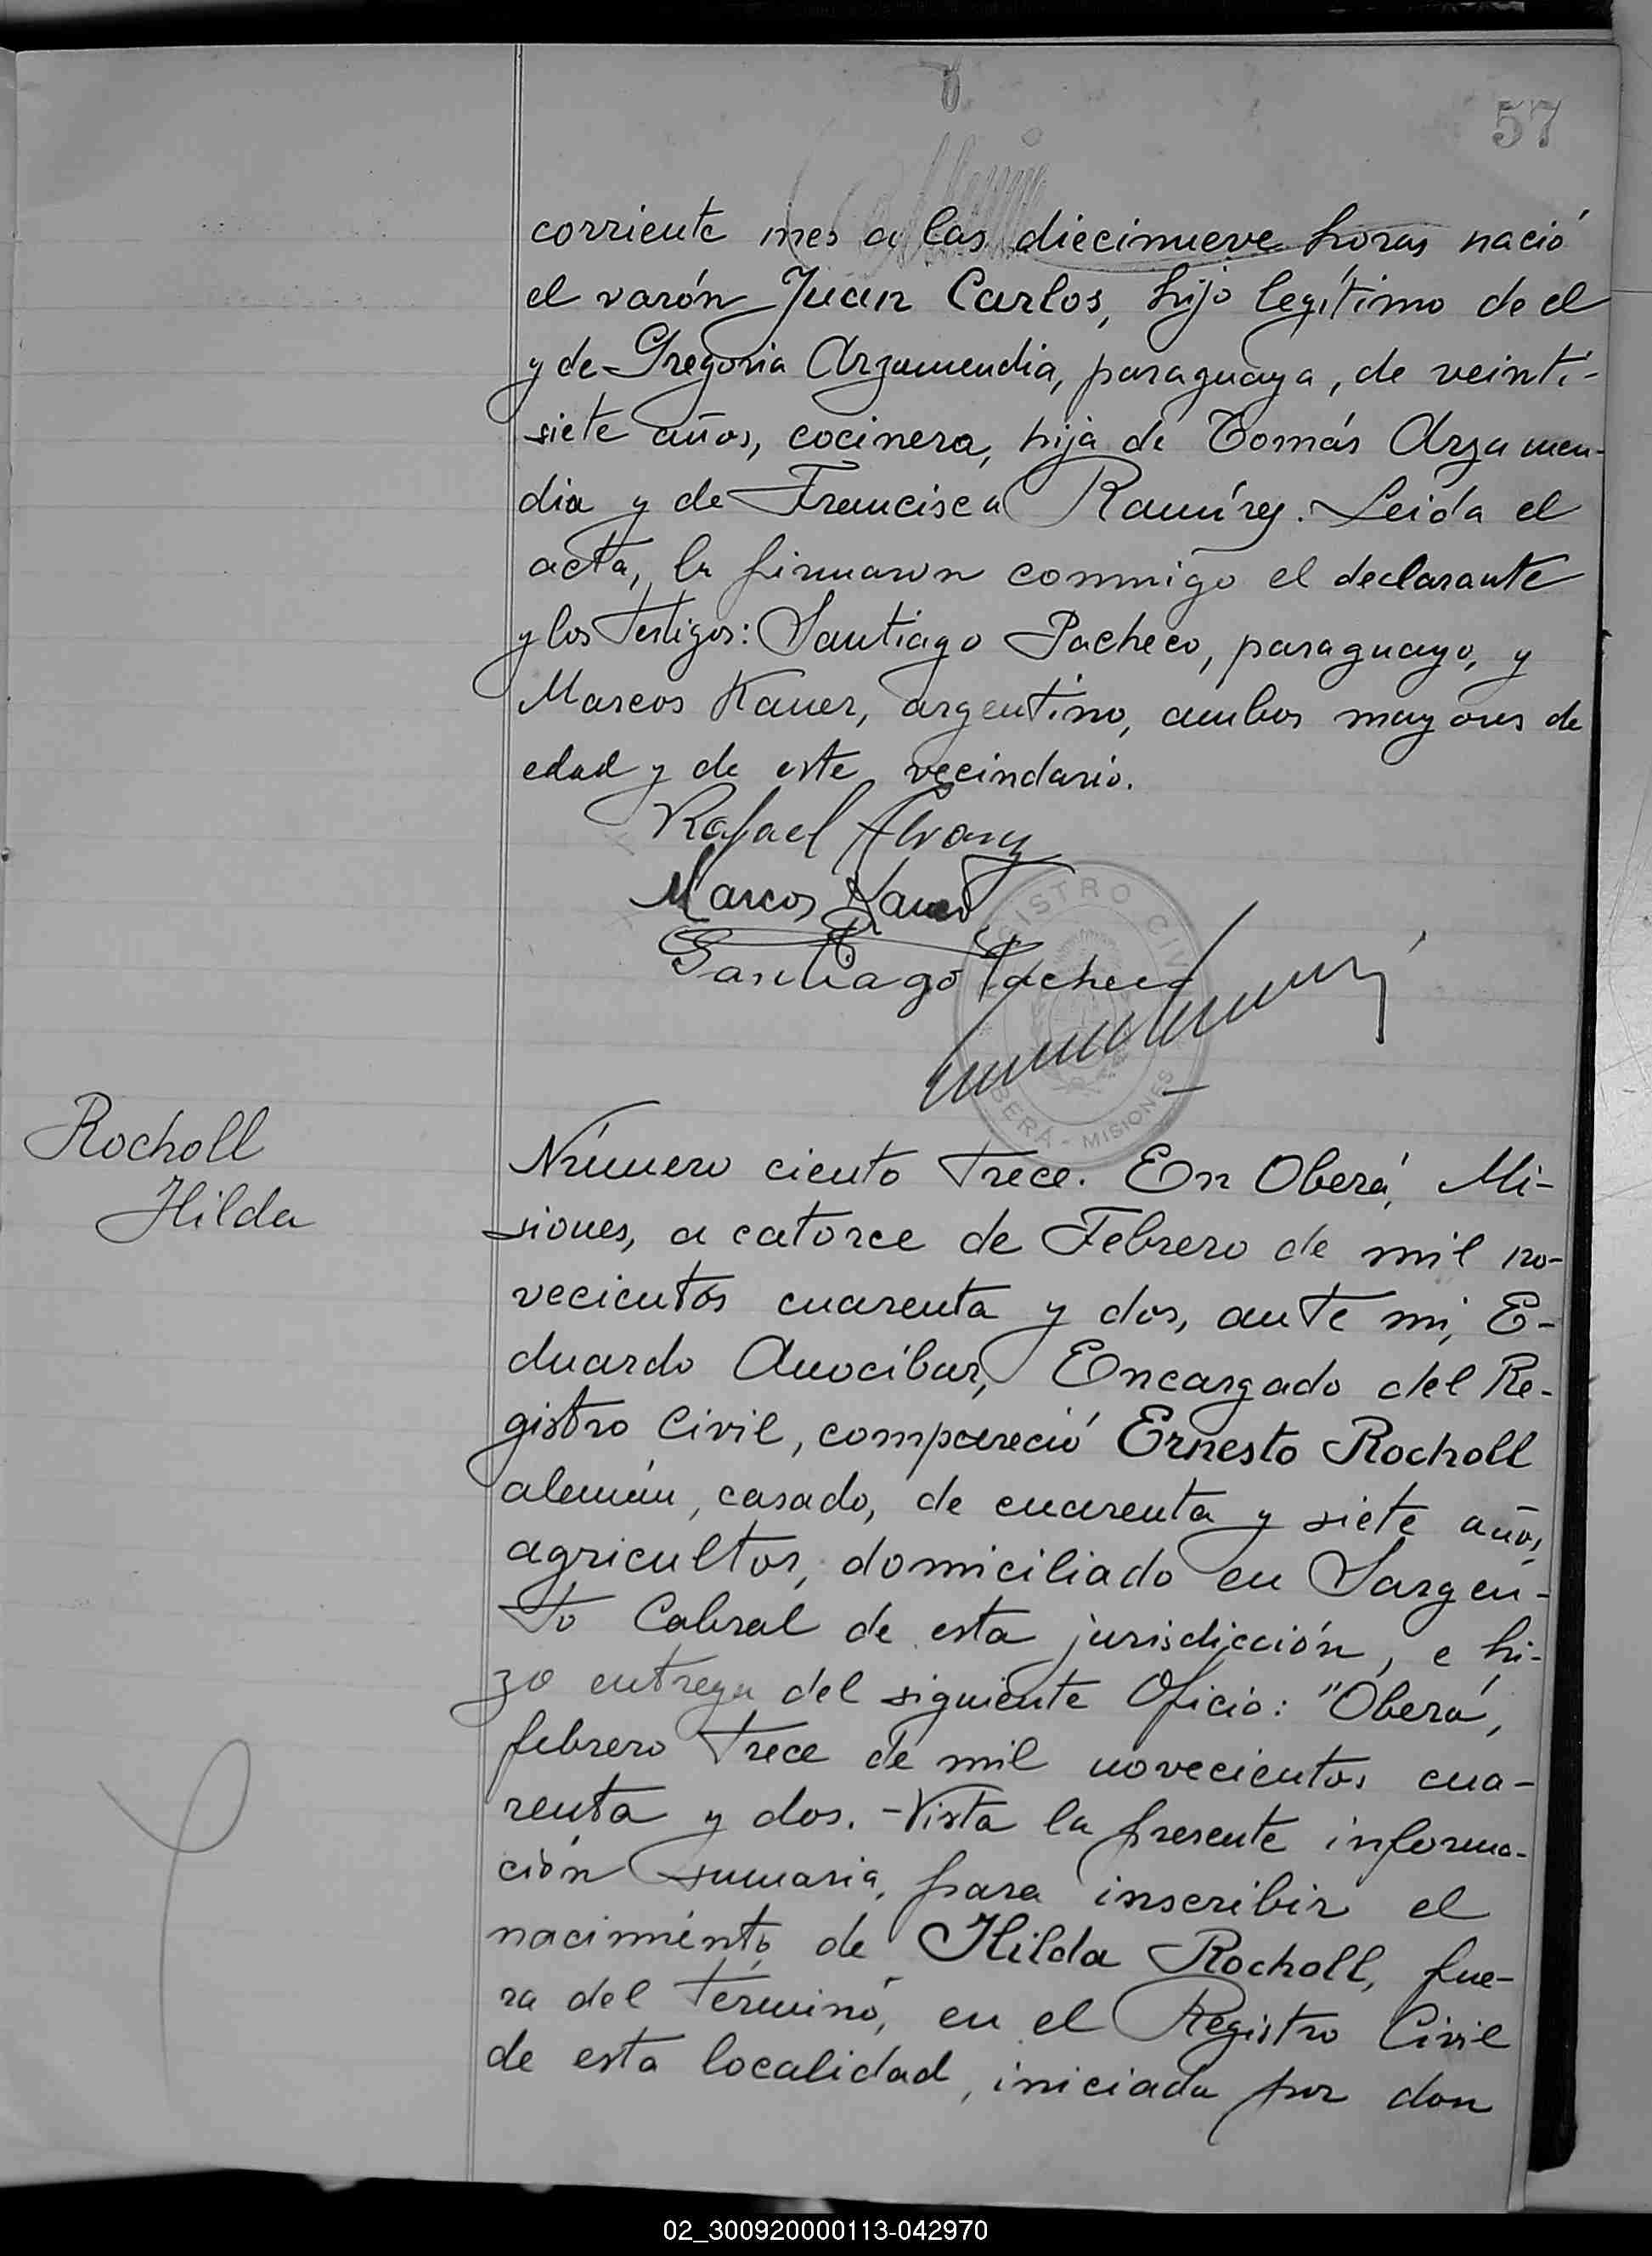 57
corriente mes a las diecinueve horas nació
el varón Juan Carlos, hijo legítimo de el
y de Gregoria Arzamendia, paraguaya, de veinti-
siete años, cocinera, hija de Tomás Arzamen-
dia y de Francisca Ramírez. Leida el
acta, la firmaron conmigo el declarante
y los testigos: Santiago Pacheco, paraguayo, y
Marcos Kauer, argentino, ambos mayores de
edad y de este vecindario.
Rafael
Marcos Kauer
Santiago Pacheco
REGISTRO CIVIL
OBERÁ - MISIONES
Rocholl
Hilda
Número ciento trece. En Oberá, Mi-
siones, a catorce de Febrero de mil no-
vecientos cuarenta y dos, ante mi, E-
duardo Anocíbar, Encargado del Re-
gistro Civil, compareció Ernesto Rocholl
alemán, casado, de cuarenta y siete años,
agricultor, domiciliado en Sargen-
to Cabral de esta jurisdicción, e hi-
zo entrega del siguiente Oficio: "Oberá,
febrero trece de mil novecientos cua-
renta y dos. - Vista la presente informa-
ción sumaria, para inscribir el
nacimiento de Hilda Rocholl, fue-
ra del término, en el Registro Civil
de esta localidad, iniciada por don
02_300920000113-042970